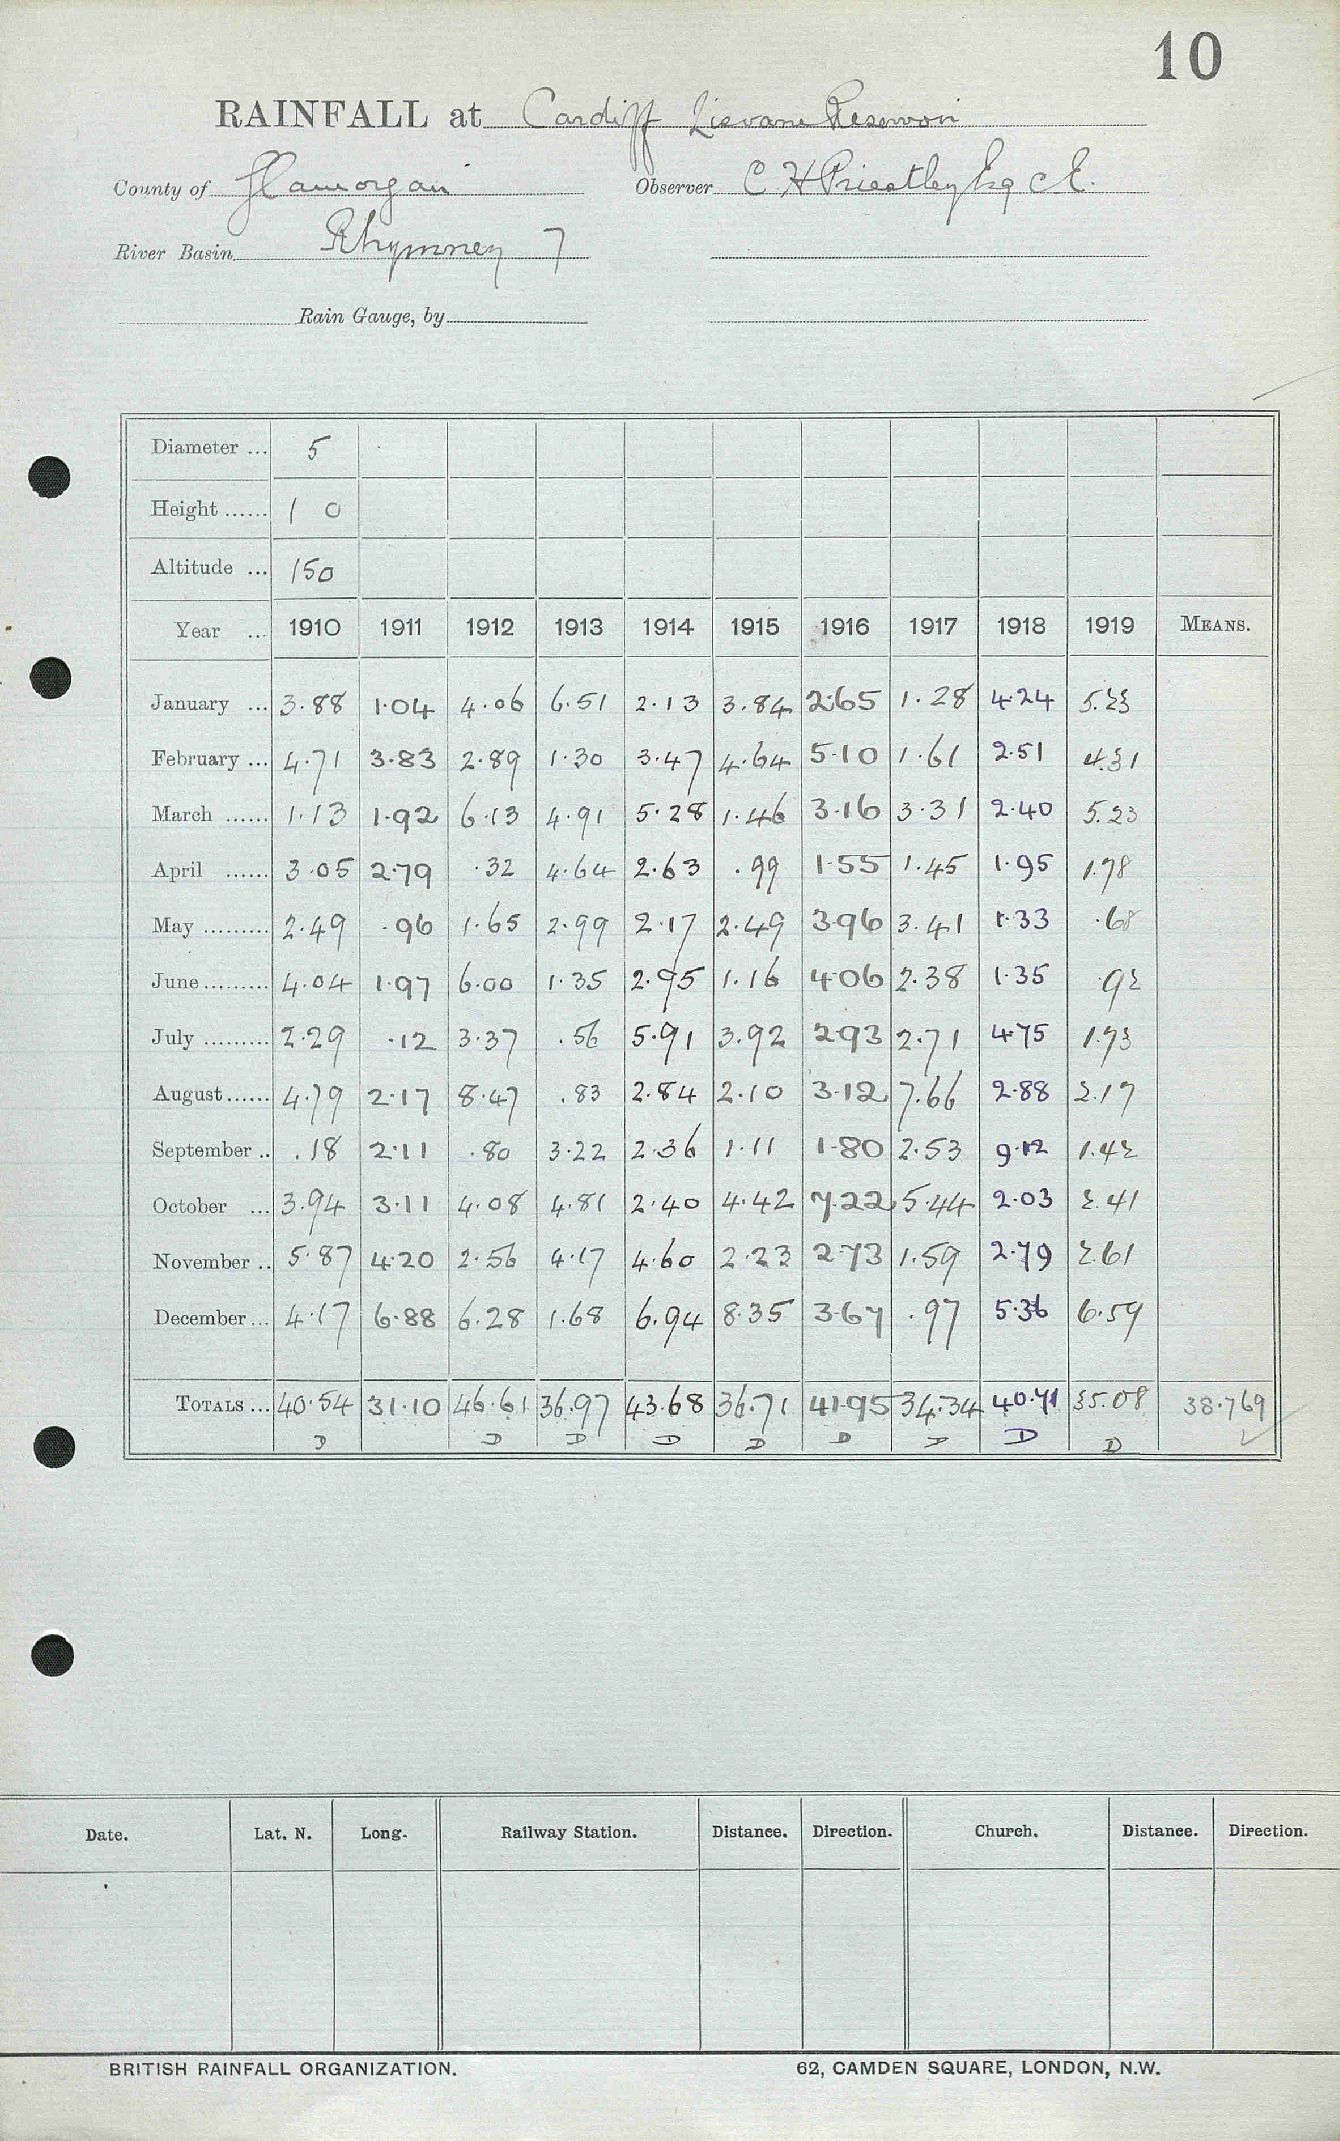 10
RAINFALL at Cardiff Lisvane Reservoir
County of Glamorgan Observer C H Priestley Esq C E.
River Basin Rhymney 7
Rain Gauge, by
Diameter ... 5
Height ...... 1 0
Altitude ... 150
Year ... 1910 1911 1912 1913 1914 1915 1916 1917 1918 1919 MEANS.
January ... 3.88 1.04 4.06 6.51 2.13 3.84 2.65 1.28 4.24 5.23
February ... 4.71 3.83 2.89 1.30 3.47 4.64 5.10 1.61 2.51 4.31
March ...... 1.13 1.92 6.13 4.91 5.28 1.46 3.16 3.31 2.40 5.23
April ...... 3.05 2.79 .32 4.64 2.63 .99 1.55 1.45 1.95 1.78
May ......... 2.49 .96 1.65 2.99 2.17 2.49 3.96 3.41 1.33 .68
June ......... 4.04 1.97 6.00 1.35 2.95 1.16 4.06 2.38 1.35 .92
July ......... 2.29 .12 3.37 .56 5.91 3.92 2.93 2.71 4.75 1.73
August ...... 4.79 2.17 8.47 .83 2.84 2.10 3.12 7.66 2.88 2.17
September .. .18 2.11 .80 3.22 2.36 1.11 1.80 2.53 9.12 1.42
October ... 3.94 3.11 4.08 4.81 2.40 4.42 7.22 5.44 2.03 2.41
November .. 5.87 4.20 2.56 4.17 4.60 2.23 2.73 1.59 2.79 2.61
December ... 4.17 6.88 6.28 1.68 6.94 8.35 3.67 .97 5.36 6.59
TOTALS ... 40.54 31.10 46.61 36.97 43.68 36.71 41.95 34.34 40.71 35.08 38.769
D D D D D D D D D
Date. Lat. N. Long. Railway Station. Distance. Direction. Church. Distance. Direction.
BRITISH RAINFALL ORGANIZATION. 62, CAMDEN SQUARE, LONDON, N.W.